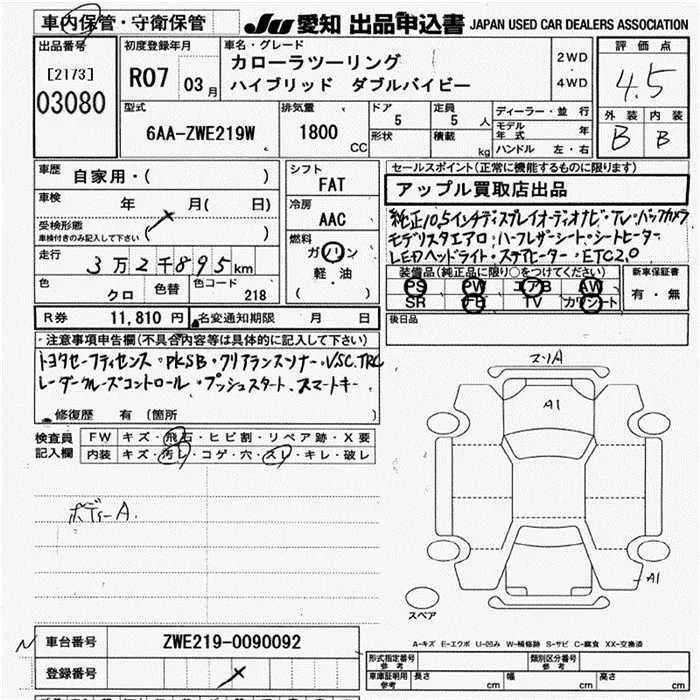 車内保管・守衛保管 JU 愛知 出品申込書 JAPAN USED CAR DEALERS ASSOCIATION
出品番号 初度登録年月 車名・グレード 評価点
[2173] R07 03月 カローラツーリング 2WD
03080 ハイブリッド ダブルバイビー ・ 4WD 4.5
型式 排気量 ドア 定員 ディーラー・並 行 外装 内装
6AA-ZWE219W 1800 CC 5 5 人 モデル年式 年 B B
形状 積載 kg ハンドル 左・右
車歴 自家用・( ) シフト セールスポイント(正常に機能するものに限ります)
FAT アップル買取店出品
車検 年 月( 日) 冷房
AAC 純正10.5インチディスプレイオーディオナビ・TV・バックカメラ
受検形態 モデリスタエアロ・ハーフレザーシート・シートヒーター
車検付きのみ記入して下さい ( ) 燃料 LEDヘッドライト・ステアヒーター・ETC2.0
走行 3万2千895km ガソリン 装備品(純正品に限り○をつけてください) 新車保証書
軽・油 PS PW エアB AW 有・無
色 クロ 色替 色コード 218 ( ) SR TV カワシート
R券 11,810円 名変通知期限 月 日 後日品
注意事項申告欄(不具合内容等は具体的に記入して下さい)
トヨタセーフティセンス・PKSB・クリアランスソナー・VSC.TRC
レーダークルーズコントロール・プッシュスタート・スマートキー
修復歴 有 (箇所 )
検査員 FW キズ・飛石・ヒビ割・リペア跡・X要
記入欄 内装 キズ・汚レ・コゲ・穴・スレ・キレ・破レ
ボデーA.
A1
A1
スペア
車台番号 ZWE219-0090092
A-キズ E-エクボ U-凹み W-補修跡 S-サビ C-腐食 XX-交換済
登録番号
形式指定番号 参考 類別区分番号 参考
車庫証明用 参考 長さ cm 幅 cm 高さ cm